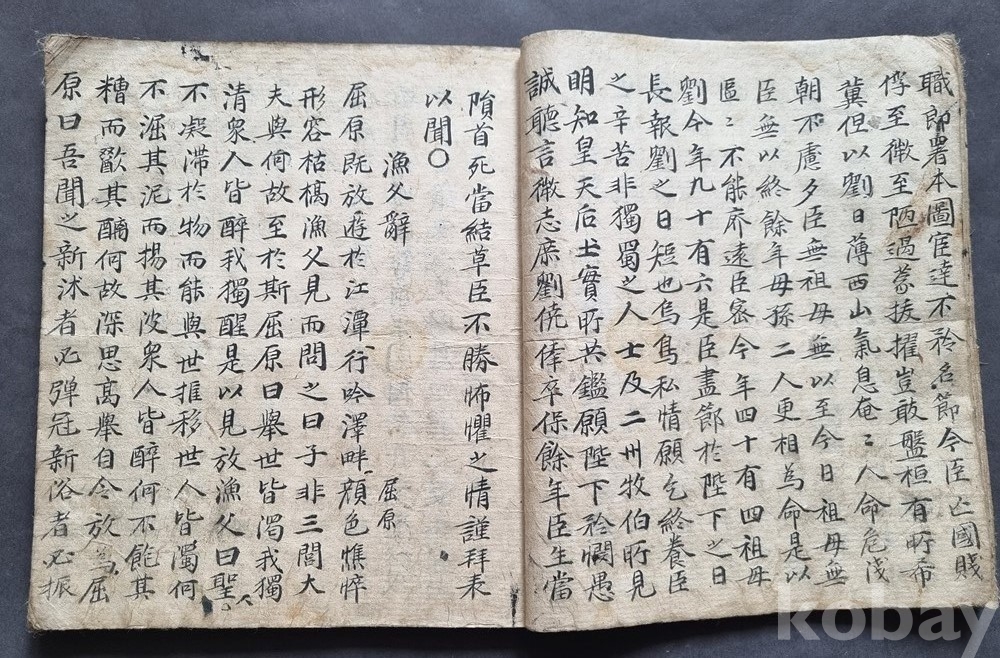 職郎署本圖宦達不矜名節今臣亡國賤
俘至微至陋過蒙拔擢豈敢盤桓有所希
冀但以劉日薄西山氣息奄〻人命危淺
朝不慮夕臣無祖母無以至今日祖母無
臣無以終餘年母孫二人更相為命是以
區〻不能廢遠臣密今年四十有四祖母
劉今年九十有六是臣盡節於陛下之日
長報劉之日短也烏鳥私情願乞終養臣
之辛苦非獨蜀之人士及二州牧伯所見
明知皇天后土實所共鑑願陛下矜憫愚
誠聽言微志庶劉僥倖卒保餘年臣生當
隕首死當結草臣不勝怖懼之情謹拜表
以聞○
漁父辭
屈原
屈原既放遊於江潭行吟澤畔顔色憔悴
形容枯槁漁父見而問之曰子非三閭大
夫與何故至於斯屈原曰舉世皆濁我獨
清衆人皆醉我獨醒是以見放漁父曰聖人
不凝滯於物而能與世推移世人皆濁何
不淈其泥而揚其波衆人皆醉何不餔其
糟而歠其醨何故深思高舉自令放為屈
原曰吾聞之新沐者必彈冠新浴者必振
kobay